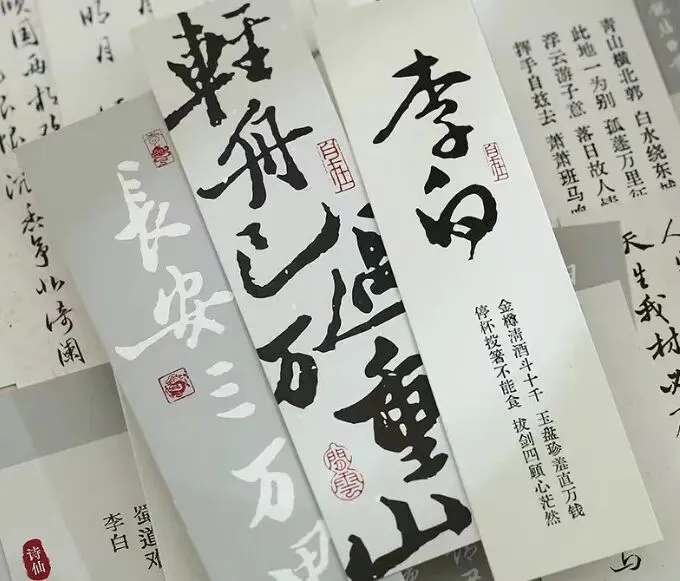 倾国两相
明月
沉香亭北倚阑
長安三万里
輕舟已過万重山
李白
金樽清酒斗十千 玉盘珍羞直万钱
停杯投箸不能食 拔剑四顾心茫然
青山横北郭 白水绕东城
此地一为别 孤蓬万里征
浮云游子意 落日故人情
挥手自兹去 萧萧班马鸣
人
天生我材必
蜀道难
李白
诗仙